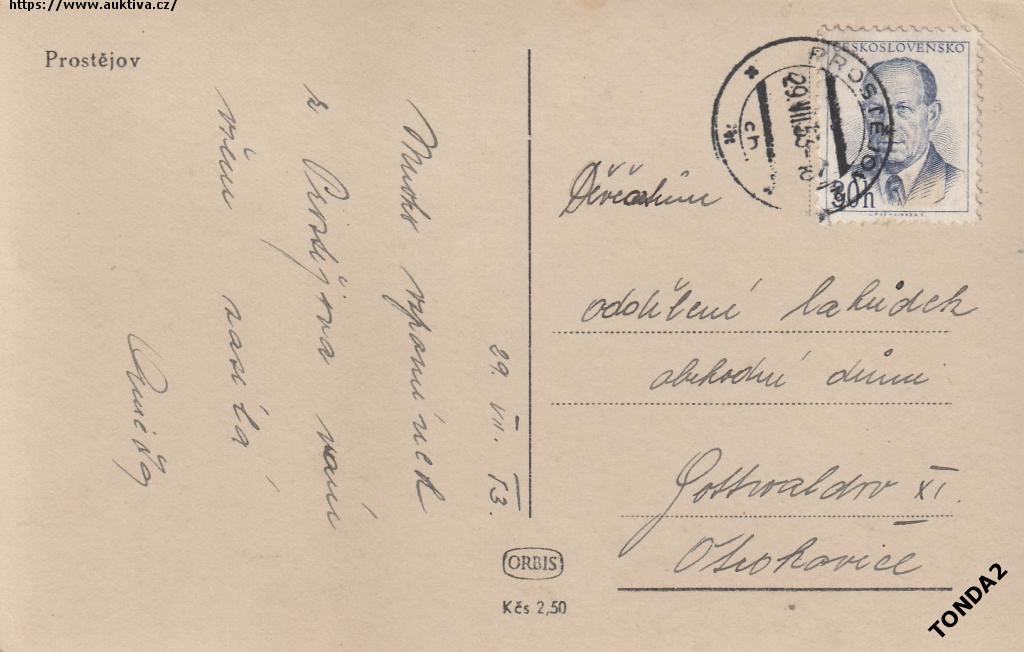 https://www.auktiva.cz/
Prostějov
29. VII. 53.
Mnoho vzpomínek
z Prostějova vám
všem zasílá
ČESKOSLOVENSKO
30h
PROSTĚJOV
29.VII.53
ch
Děvčatům
oddělení lahůdek
obchodní dům
Gottwaldov XI.
Otrokovice
ORBIS
Kčs 2,50
TONDA2